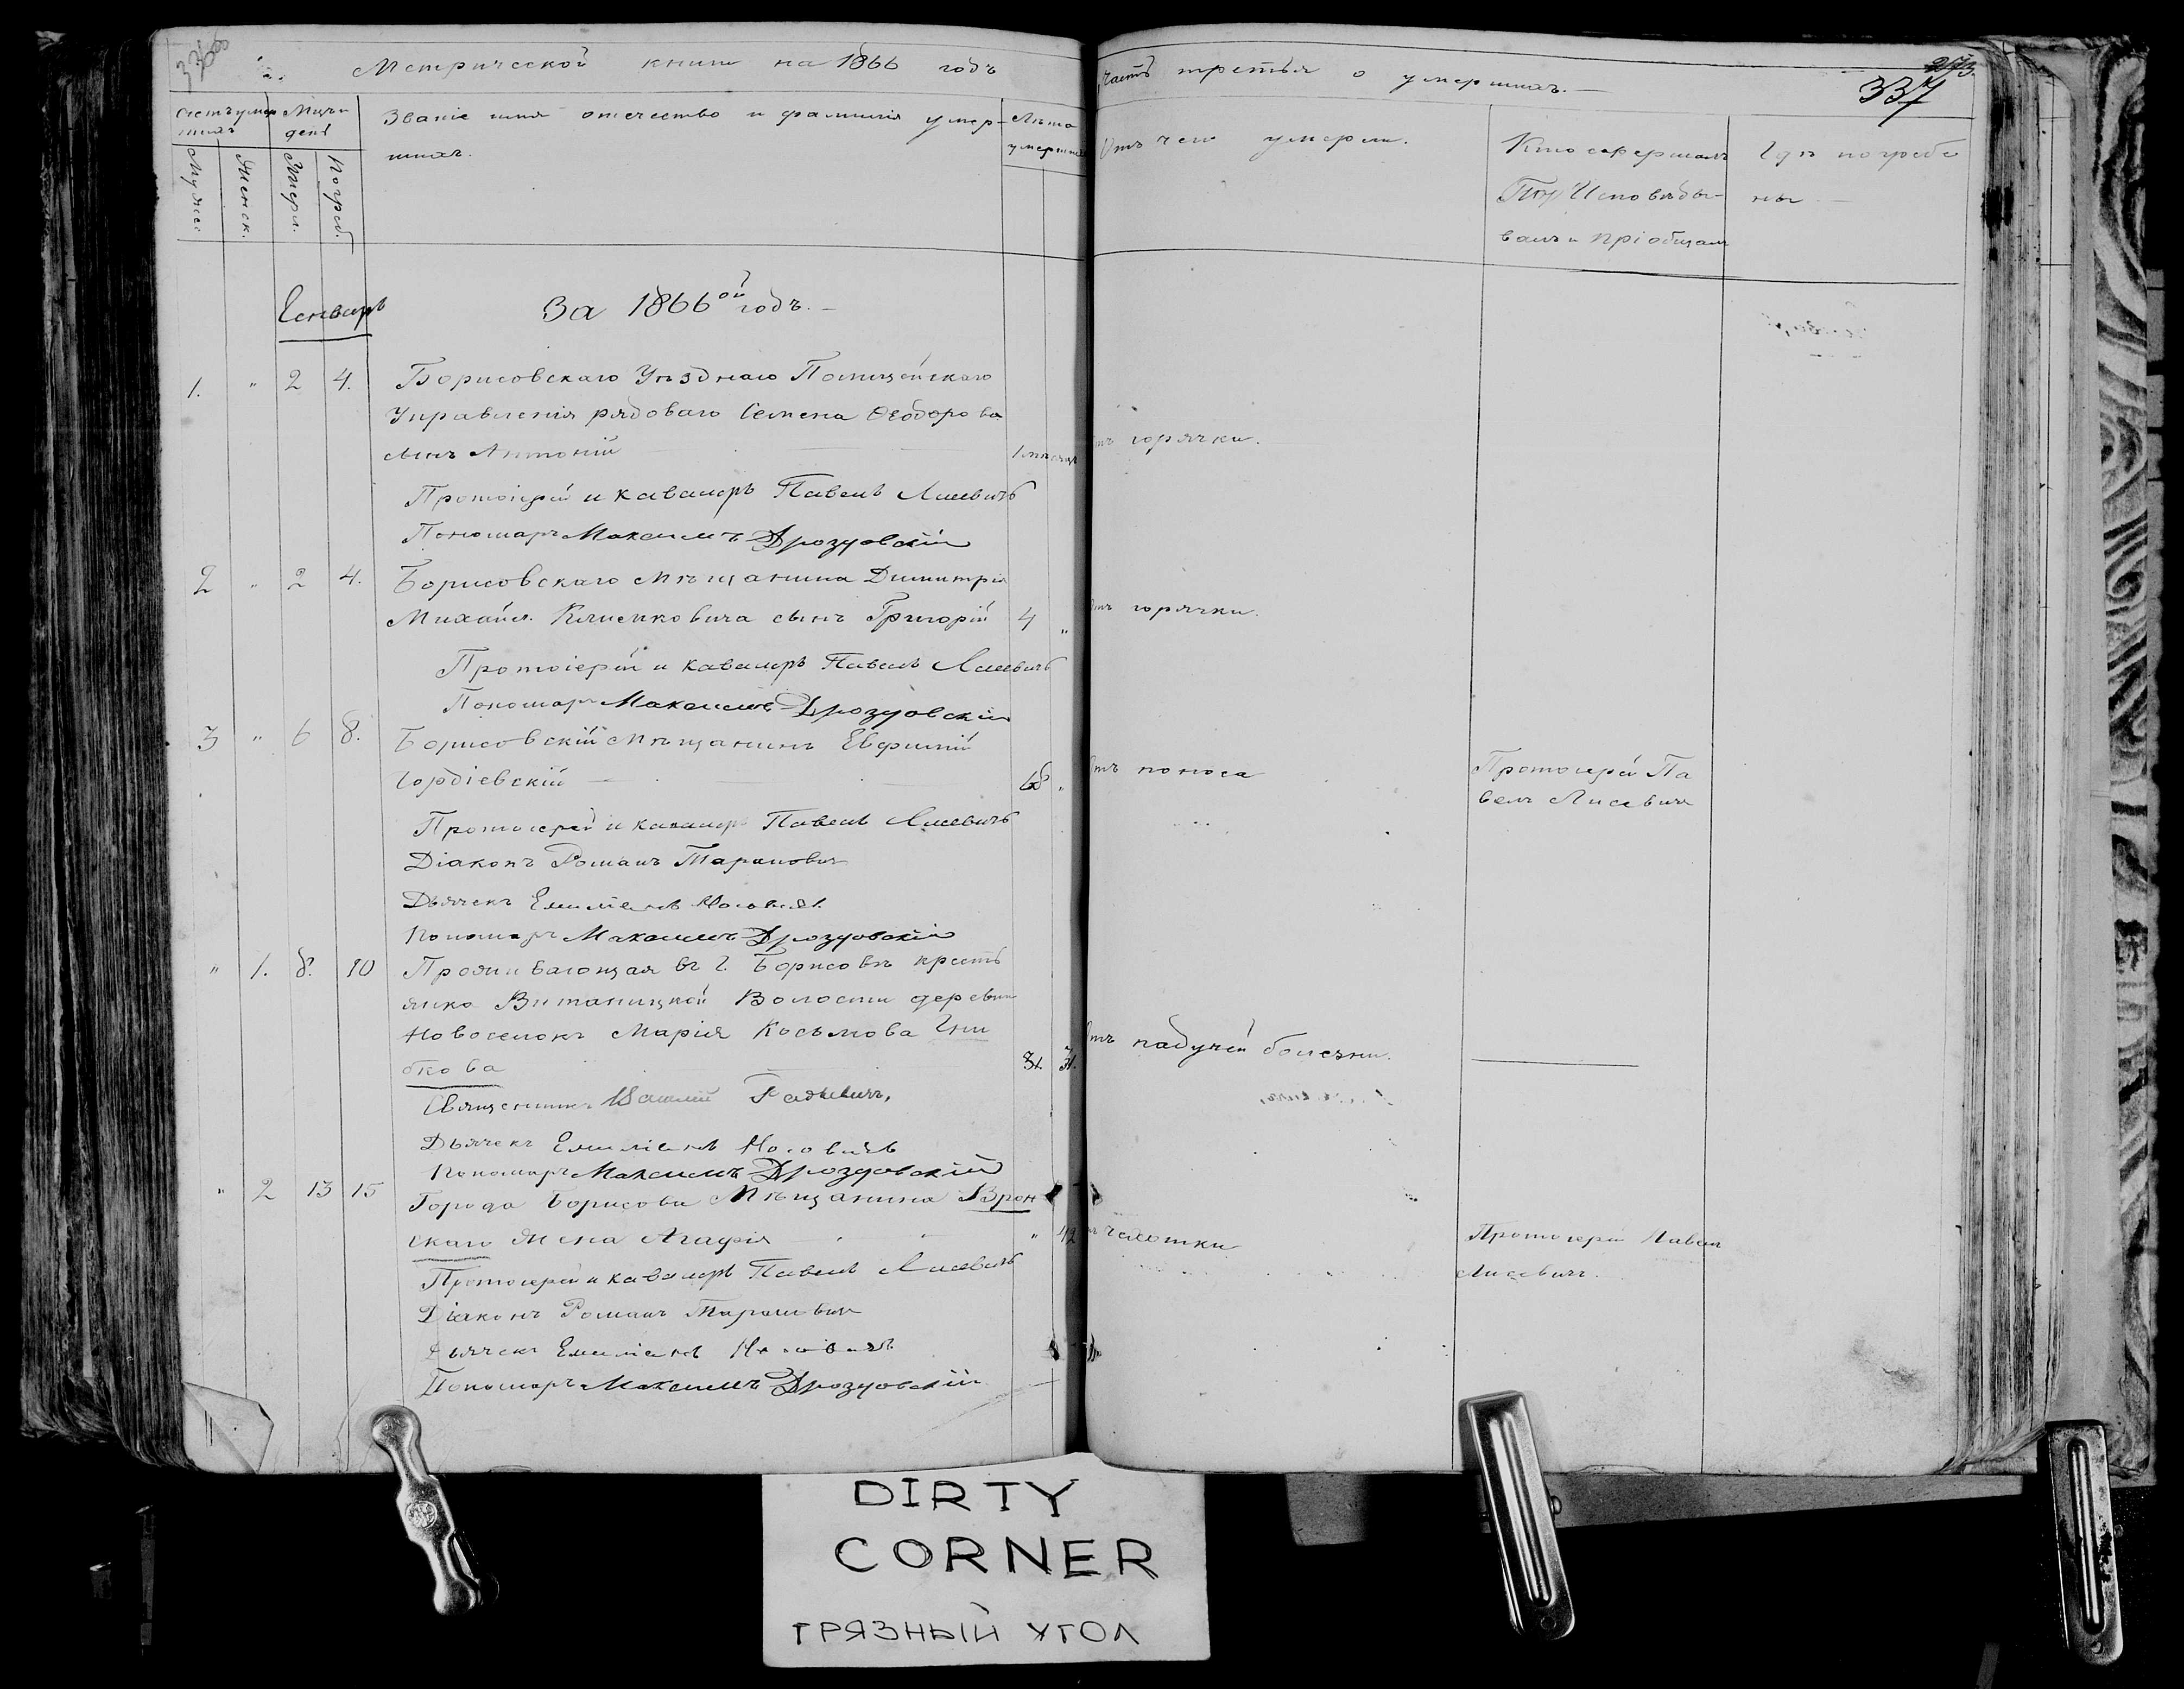 Метрической книги на 1866 годъ
часть третья о умершихъ.
337
Счетъ умершихъ
Мужес
Женск.
Мцъ и день
Умерл.
Погреб.
Званіе имя отчество и фамилія умер-
шихъ.
Лѣта
умерших
Отъ чего умерли.
Кто совершалъ
Исповѣды-
валъ и пріобщалъ
Гдѣ погребе
ны
Генварь
За 1866ой годъ.
1. " 2 4. Борисовскаго Уѣзднаго Полицейскаго
Управленія рядоваго Семена Ѳеодорова
сынъ Антоній 1 мѣсяцъ отъ горячки.
Протоіерей и кавалеръ Павелъ Лисевичъ
Пономарь Максимъ Дроздовскій
2 " 2 4. Борисовскаго мѣщанина Димитрія
Михайл. Клиенковича сынъ Григорій 4 " Отъ горячки.
Протоіерей и кавалеръ Павелъ Лисевичъ
Пономарь Максимъ Дроздовскій
3 " 6 8. Борисовскій мѣщанинъ Евфимій
Гордіевскій 68 " Отъ поноса Протоіерей Па
велъ Лисевичъ
Протоіерей и кавалеръ Павелъ Лисевичъ
Діаконъ Романъ Тарановичъ
Дьячекъ Емиліанъ
Пономарь Максимъ Дроздовскій
" 1. 8. 10 Проживающая въ г. Борисовѣ кресть
янка Волости деревни
Новоселокъ Марія Косьмова
бкова 31. Отъ падучей болезни.
Священникъ Василій
Дьячекъ Емиліанъ
Пономарь Максимъ Дроздовскій
" 2 13 15 Города Борисова Мѣщанина Врон
скаго Жена Агафія " 42 чахотки Протоіерей Павелъ
Лисевичъ.
Протоіерей и кавалеръ Павелъ Лисевичъ
Діаконъ Романъ Тарановичъ
Дьячекъ Емиліанъ
Пономарь Максимъ Дроздовскій
DIRTY
CORNER
ГРЯЗНЫЙ УГОЛ